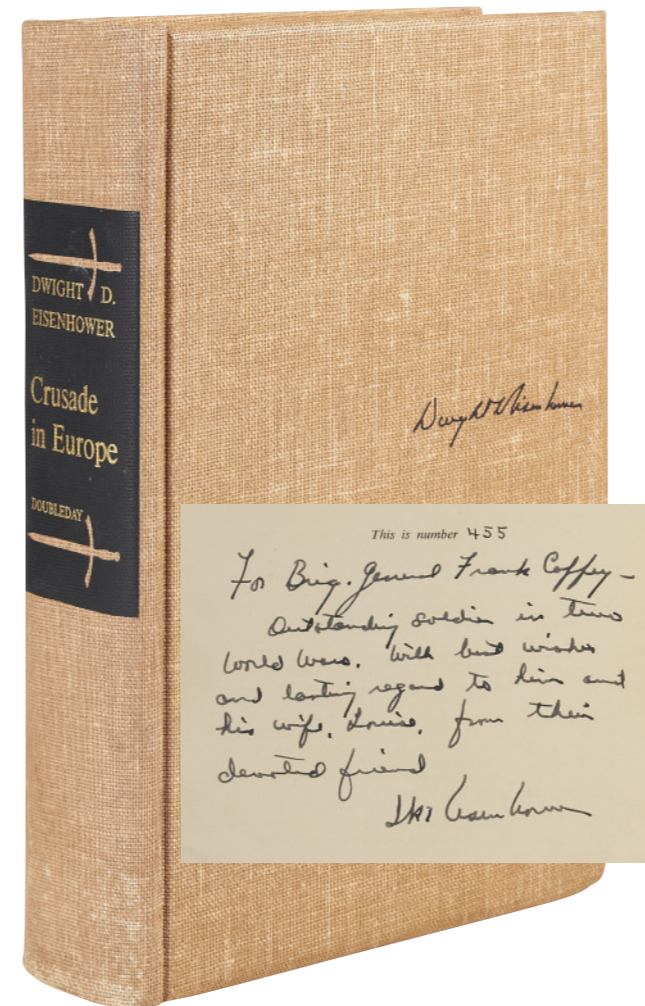 DWIGHT D.
EISENHOWER
Crusade
in Europe
DOUBLEDAY
Dwight D Eisenhower
This is number 455
For Brig. General Frank Coffey –
Outstanding soldier in two
World Wars. With best wishes
and lasting regard to him and
his wife, Louise, from their
devoted friend
Ike Eisenhower